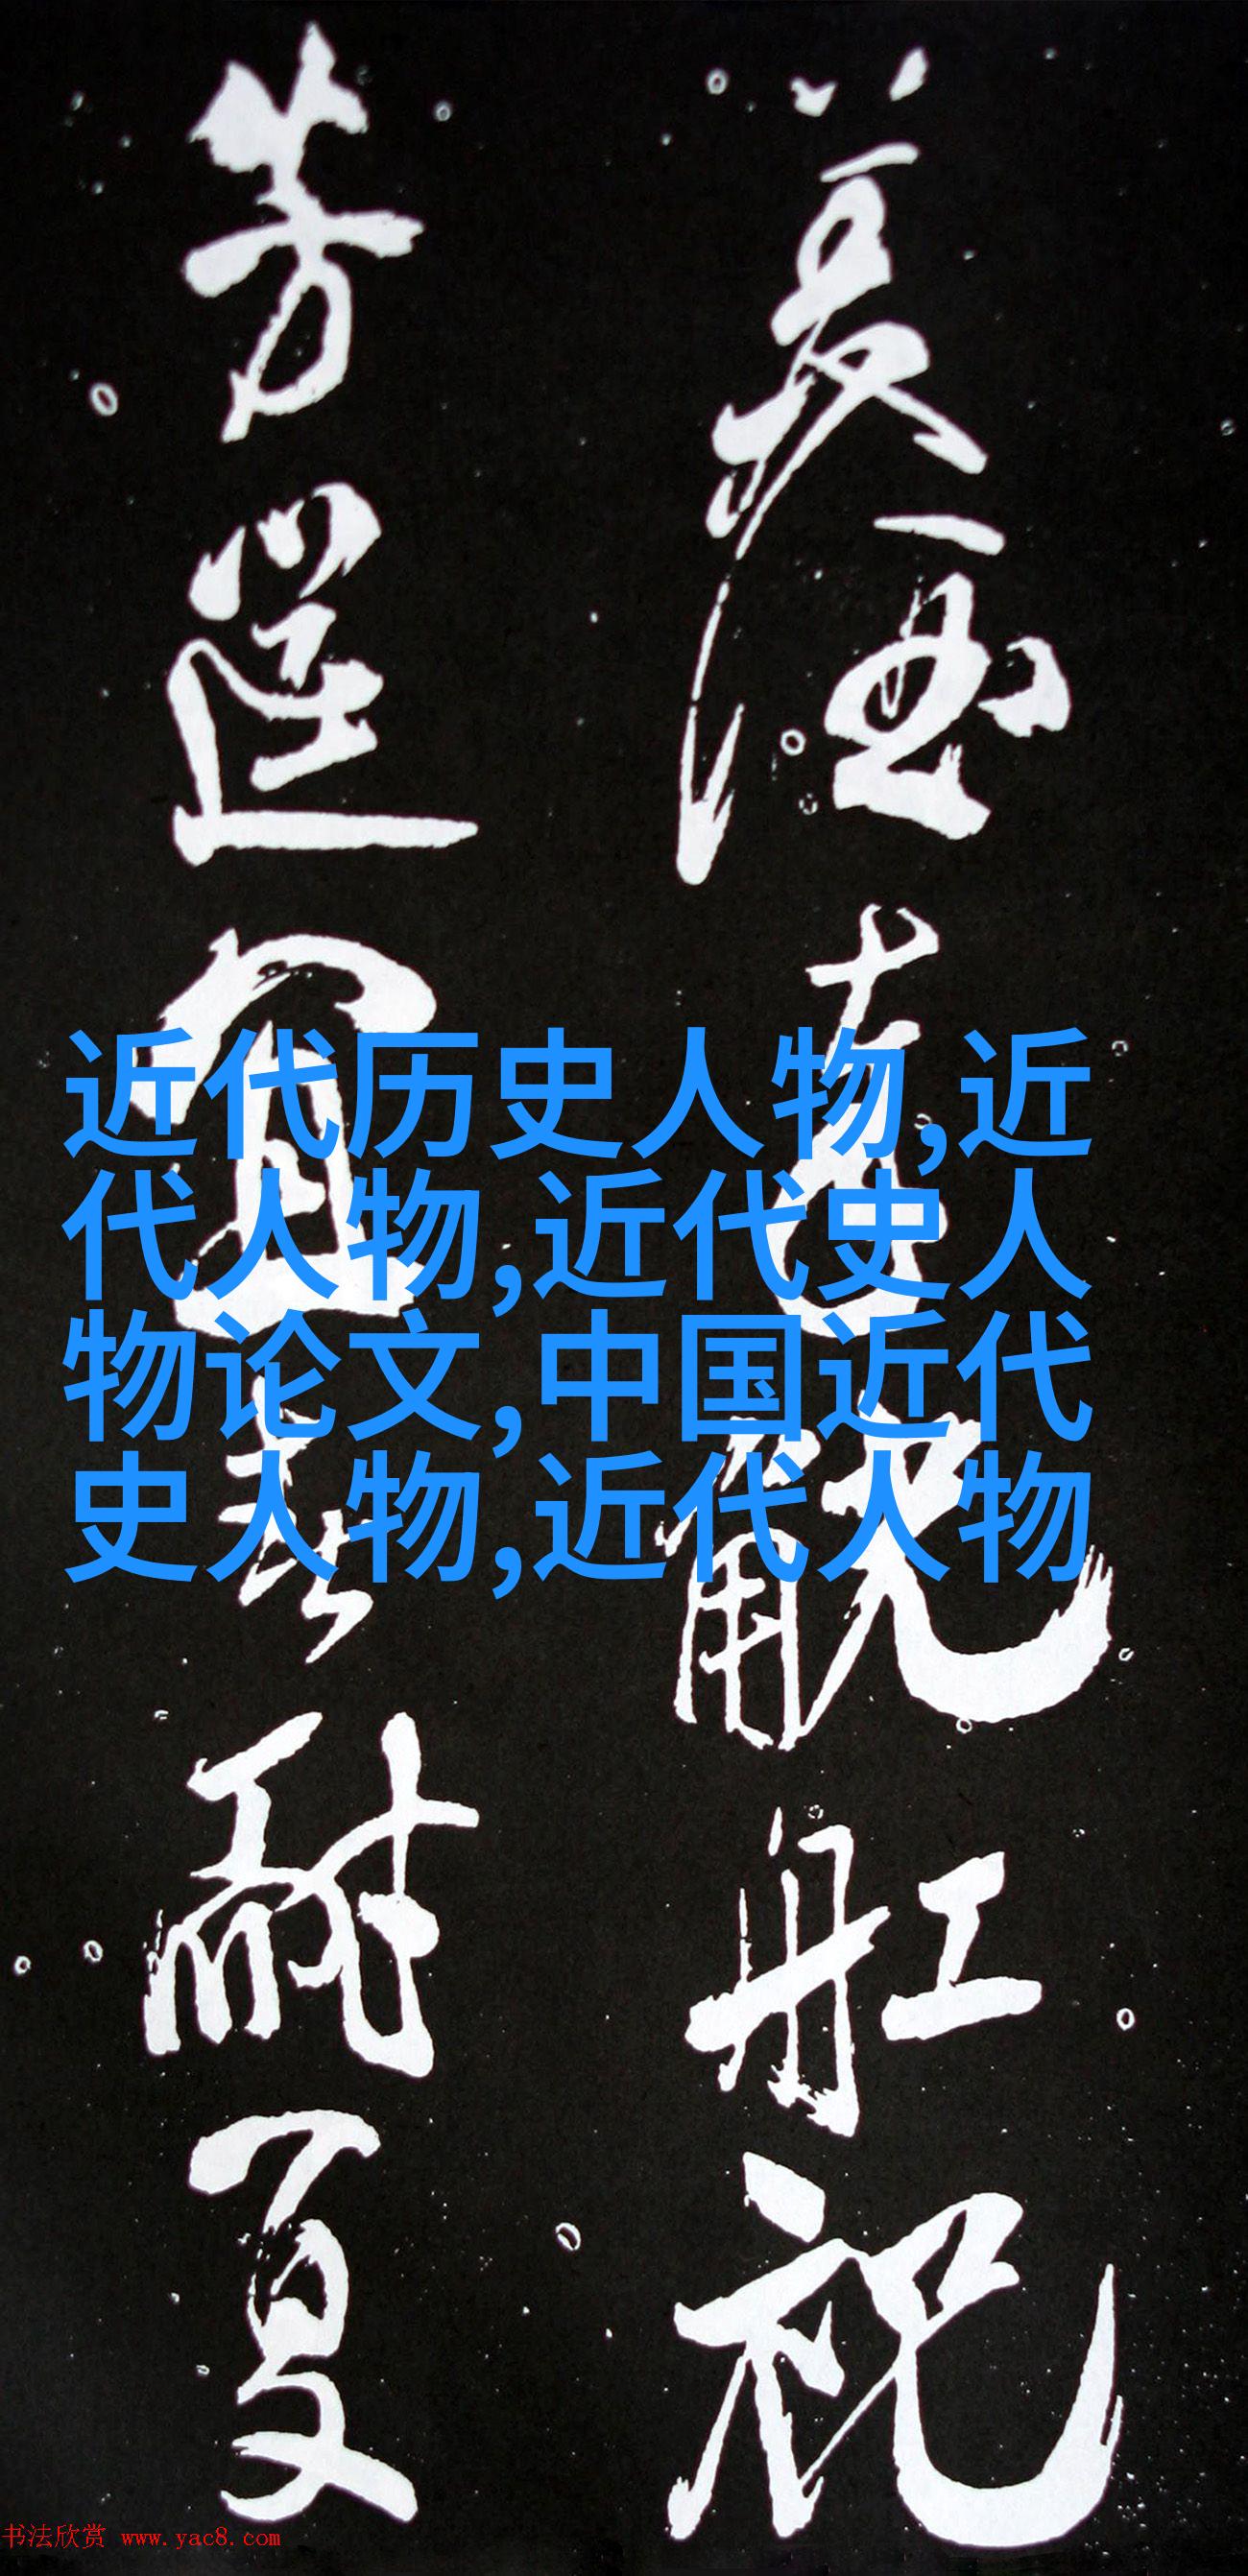 美酒觥舡祝
芳筵宜耐夏
近代历史人物,近
代人物,近代史人
物论文,中国近代
史人物,近代人物
书法欣赏 www.yac8.com